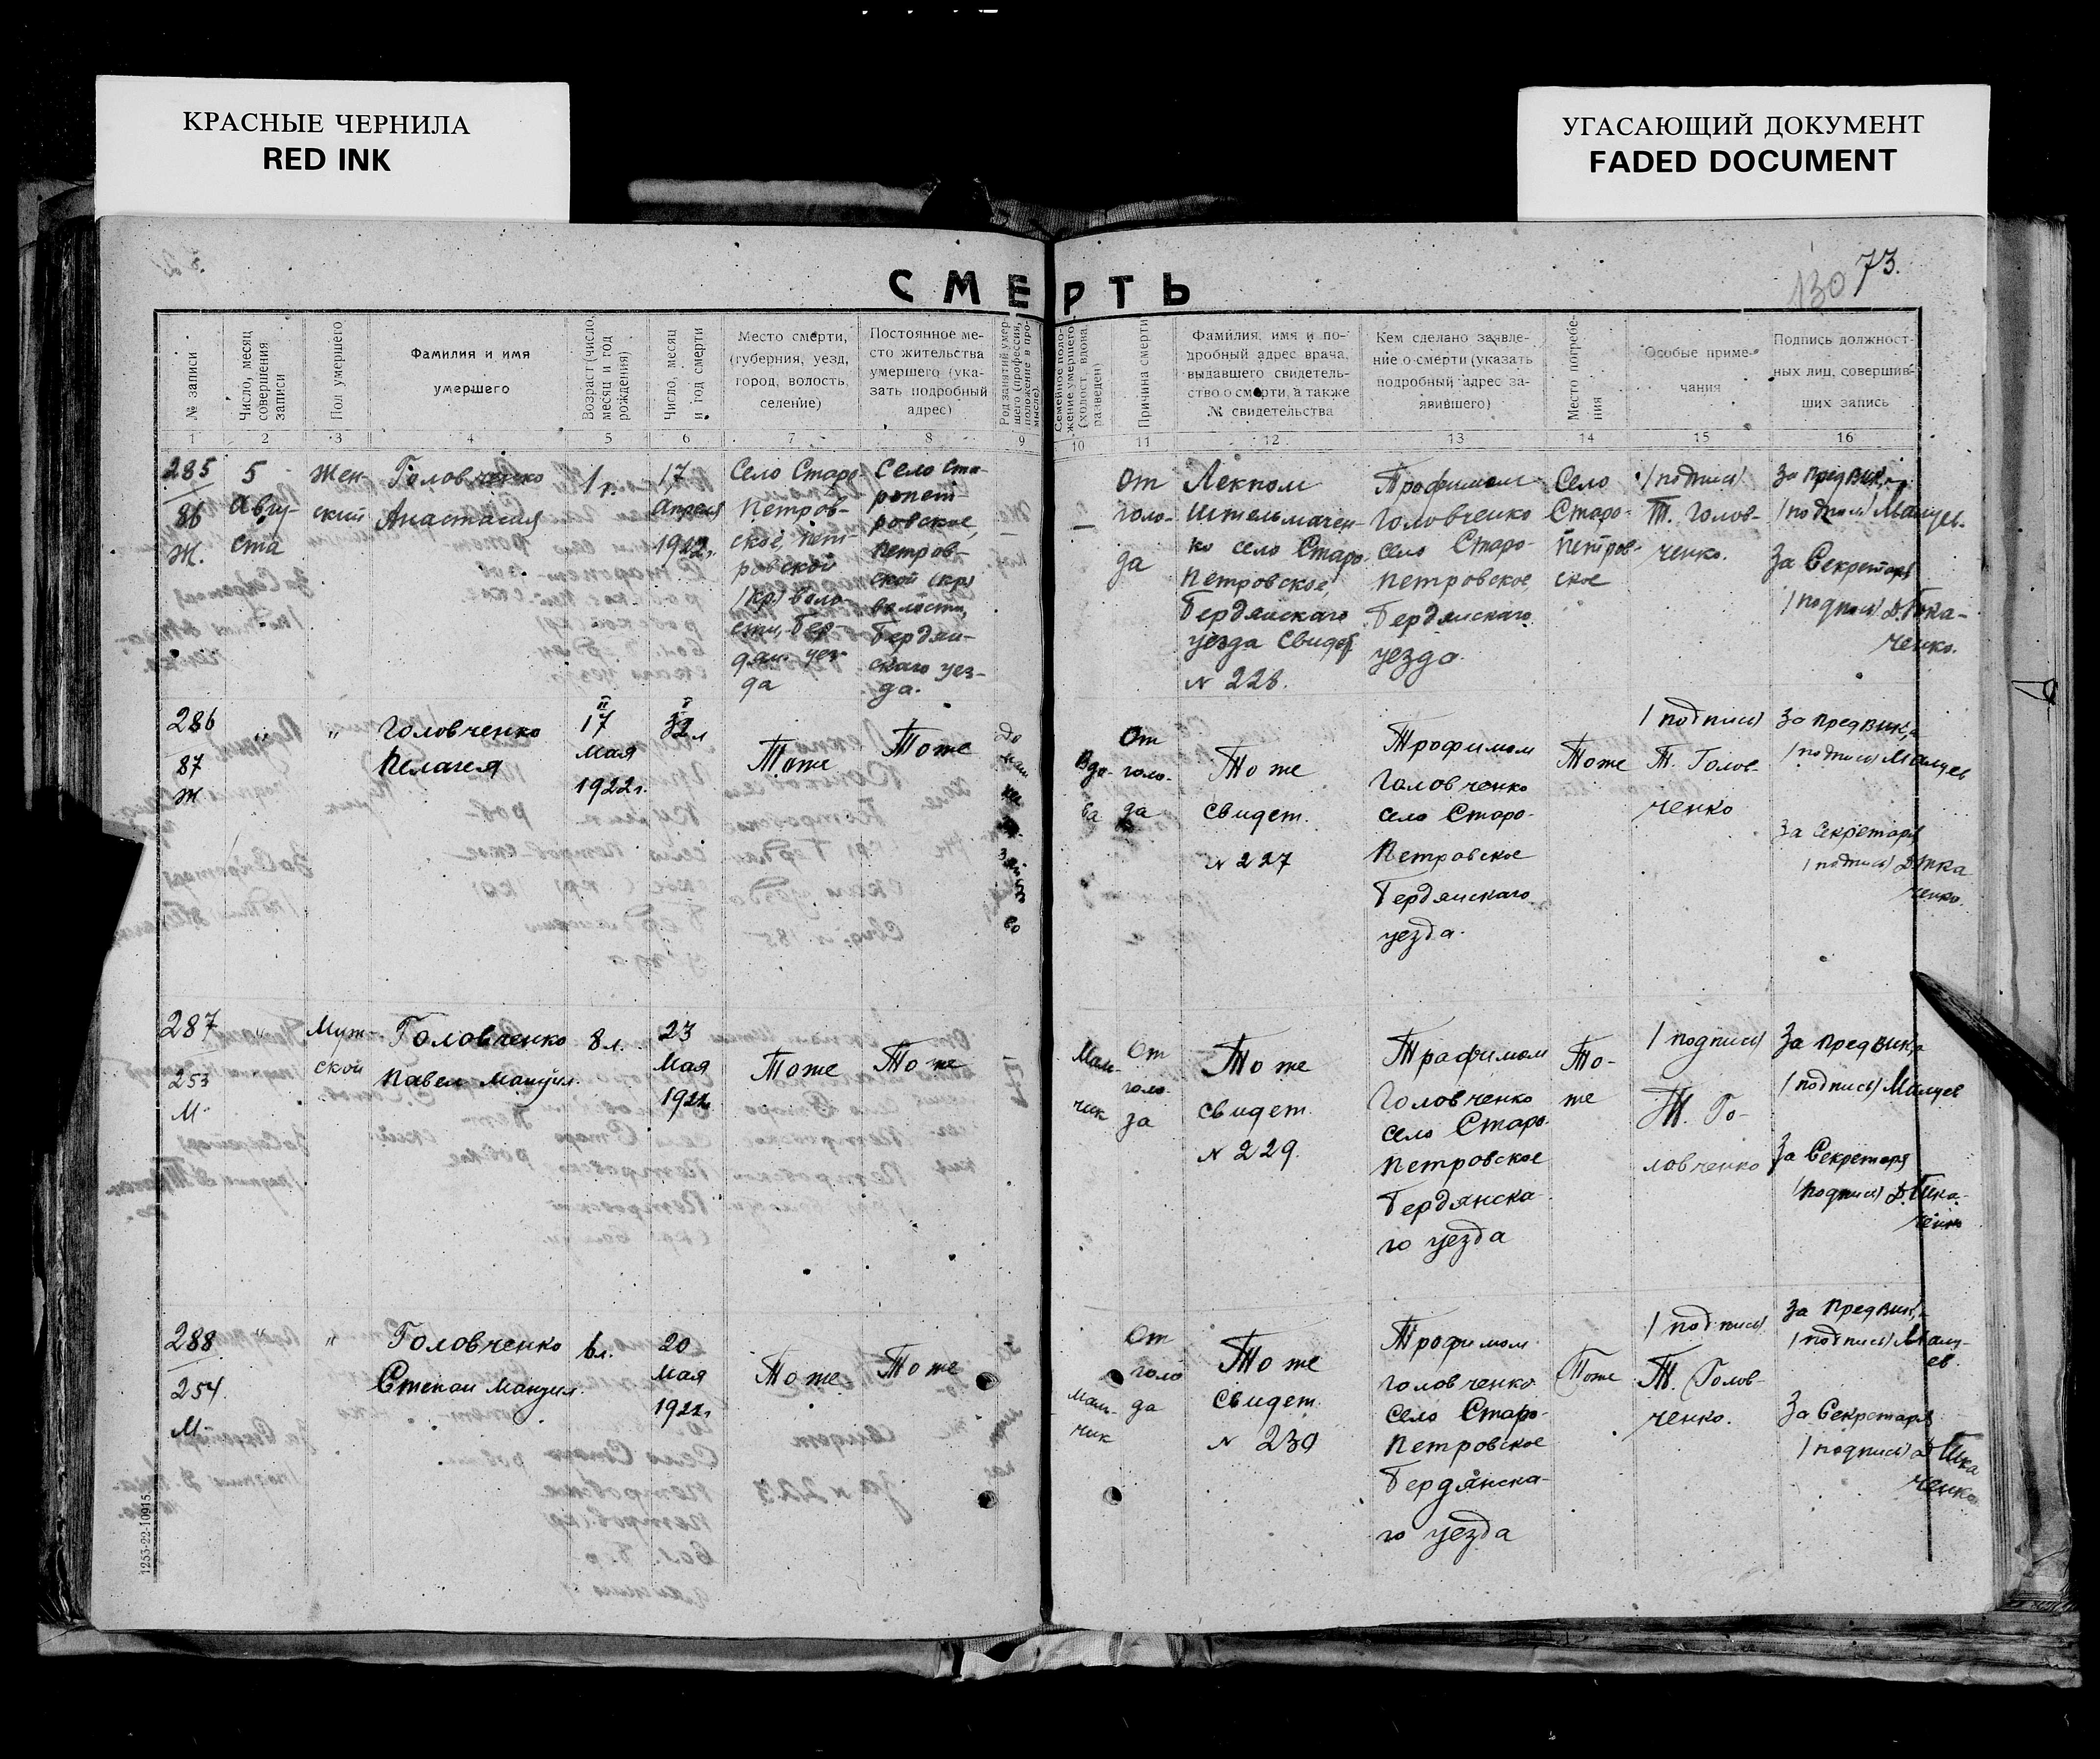 КРАСНЫЕ ЧЕРНИЛА
RED INK
УГАСАЮЩИЙ ДОКУМЕНТ
FADED DOCUMENT
73.
130
СМЕРТЬ
№ записи
Число, месяц
совершения
записи
Пол умершего
Фамилия и имя
умершего
Возраст (число,
месяц и год
рождения)
Число, месяц
и год смерти
Место смерти,
(губерния, уезд,
город, волость,
селение)
Постоянное ме-
сто жительства
умершего (ука-
зать подробный
адрес)
Род занятий умер-
шего (профессия,
положение в про-
мысле).
Семейное поло-
жение умершего
(холост, вдова,
разведен)
Причина смерти
Фамилия, имя и по-
дробный адрес врача,
выдавшего свидетель-
ство о смерти, а также
№ свидетельства
Кем сделано заявле-
ние о смерти (указать
подробный адрес за-
явившего)
Место погребе-
ния
Особые приме-
чания
Подпись должност-
ных лиц, совершив-
ших запись
1 2 3 4 5 6 7 8 9 10 11 12 13 14 15 16
285
86
Ж.
5
Авгу-
ста
Жен-
ский
Головченко
Анастасия
1 г.
17
Апреля
1922г.
Село Старо-
Петров-
ское, пет-
ровской
(кр) воло-
сти, Бер-
дян. уез-
да
Село Ста-
ропет-
ровское,
Петров-
ской (кр)
волости,
Бердян-
скаго уез-
да.
От
голо-
да
Лекпом
Штельмачен-
ко село Старо
Петровское,
Бердянскаго
уезда Свидет
N 228.
Трофимом
Головченко
село Старо-
петровское,
Бердянскаго
уезда.
Село
Старо-
петров-
ское
/подпись/
Т. Голов-
ченко.
За Предвик,а
/подпись/ Малцев.
За Секретаря
/подпись/ Д. Тка-
ченко.
286
87
Ж
"
"
Головченко
Пелагея
17
мая
1922г.
32 л
Тоже
Тоже
До
хо
во
Вдо-
ва
От
голо-
да
То же
Свидет.
N 227
Трофимом
Головченко
село Старо-
Петровское
Бердянскаго
уезда.
Тоже
/подпись/
Т. Голов-
ченко
За предвик,а
/подпись/ Малцев
За секретаря
/подпись/ Д Тка
ченко.
287
253
М.
"
Муж-
ской
Головченко
Павел Мануил.
8 л.
23
Мая
1922
Тоже
То же
Маль-
чик
От
голо-
да
То же
свидет.
N 229.
Трафимом
Головченко
село Старо-
Петровское
Бердянска-
го уезда
То-
же
/подпись/
Т. Го-
ловченко
За предвика
/подпись/ Малцев
За Секретаря
/подпись/ Д. Тка-
ченко
288
254.
М.
"
"
Головченко
Степан Мануил.
6 л.
20
Мая
1922г
То же
То же
Маль-
чик
От
голо
да
То же
Свидет.
N 230
Трофимом
Головченко
Село Старо-
Петровское
Бердянска-
го уезда
Тоже
/подпись/
Т. Голов-
ченко.
За Предвик,а
/подпись/ Малц-
ев.
За Секретаря
/подпись/ Д Тка
ченко.
1253-22-10915